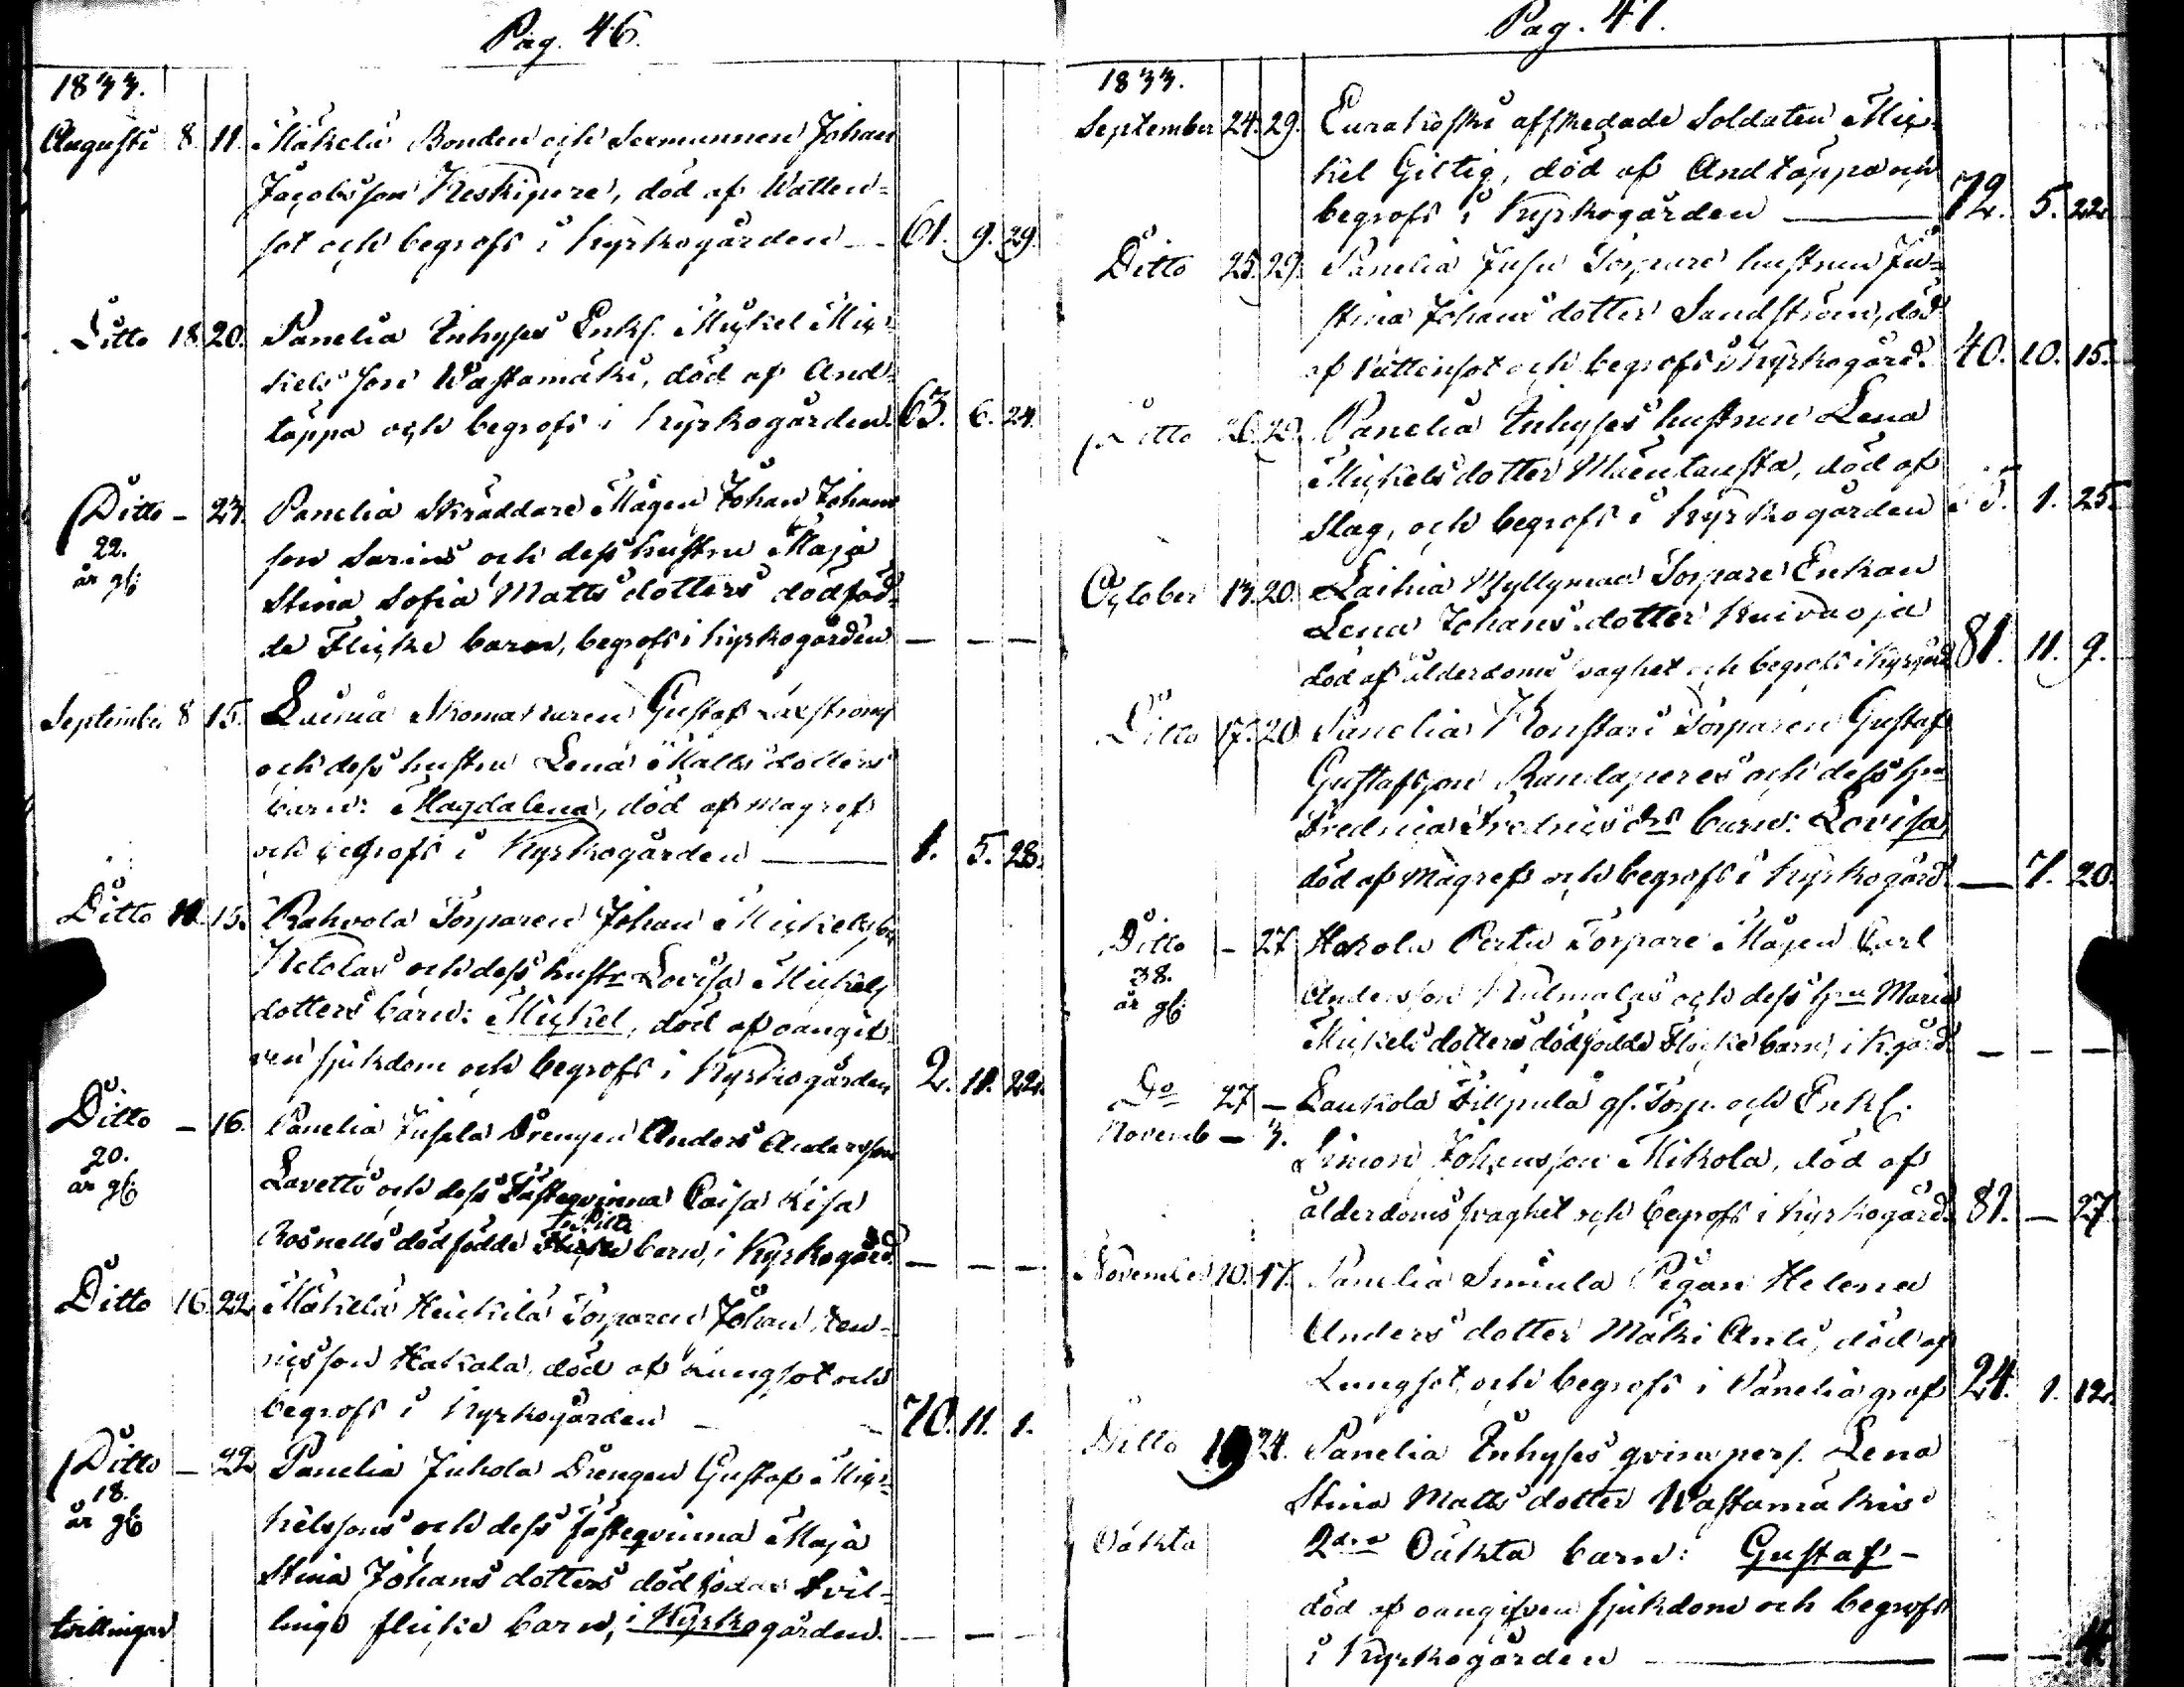 Pag. 46.
1833.
Augusti 8. 11. Mäkelä Bonden och Sexmannen Johan
Jacobsson Keskipere, död af Watten-
sot och begrofs i Kyrkogården 61. 9. 29.
Ditto 18. 20. Panelia Inhyses Enkl. Mickel Mic-
kels son Wästamäki, död af And-
täppa och begrofs i Kyrkogården. 63. 6. 24.
Ditto - 23. Panelia Skräddare Mågen Johan Johans
22. son Sarins och dess hustru Maja
år gl: Stina Sofia Matts dotters dödföd-
de Flicke barn, begrofs i kyrkogården — — —
September 8 15. Skomakaren Gustaf Laxströms
och dess hustru Lena Matts dotters
barn: Magdalena, död af magref
och begrofs i Kyrkogården 1. 5. 28.
Ditto 11. 15. Rahvola Torparen Johan Mickelsson
Ketolas och dess hustr Lovisa Mickels
dotters barn: Mickel, död af oangif-
ven sjukdom och begrofs i Kyrkogården 2. 11. 22.
Ditto - 16. Panelia Juhola Drengen Anders Andersson
20. Lavetts och dess Fästeqvinna Caisa Lisa
år gl: Rosnells dödfödde Flicke barn, i Kyrkogård. — — —
Ditto 16. 22. Mäkelä Heickilä Torparen Johan Hen-
ricsson Hakala, död af Lungsot och
begrofs i Kyrkogården 70. 11. 1.
Ditto - 22. Panelia Juhola Drengen Gustaf Mic-
18. kelssons och dess fästeqvinna Maja
år gl: Stina Johans dotters dödfödda tvil-
tvillingar lings flicke barn, i Kyrkogården. — — —
Pag. 47.
1833.
September 24. 29. Eurakoski afskedade Soldaten Mic-
kel Giltig, död af Andtäppa och
begrofs i Kyrkogården 72. 5. 22.
Ditto 25. 29. Panelia Torpare hustrun Ju-
stina Johans dotter Sandström, död
af Vattensot och begrofs i Kyrkogård. 40. 10. 15.
Ditto 26. 29. Panelia Inhyses hustrun Lena
Mickels dotter Mäentausta, död af
slag, och begrofs i Kyrkogården 1. 25.
October 13. 20. Laihia Myllymaa Torpare Enkan
Lena Johans dotter Kuivaoja
död af ålderdoms svaghet och begrofs i Kyrgård 81. 11. 9.
Ditto 17. 20. Panelia Konstari Torparen Gustaf
Gustafsson Rantaperes och dess hu
Fredrica Fredrics drs barn: Lovisa
död af Magref och begrofs i Kyrkogård. — 7. 20.
Ditto - 27. Hakola Perttu Torpare Mågen Carl
38. Andersson Kulmalas och dess hu Maria
år gl: Mickels dotters dödfödde Flicke barn, i K.gård. — — —
Do 27 — Laukola Filppula gl. Torp. och Enkl.
Novemb — 3. Simon Johansson Mikola, död af
ålderdoms svaghet och begrofs i Kyrkogård. 81. — 27
November 10. 17. Panelia Pigan Helena
Anders dotter Mäki Anti, död af
Lungsot, och begrofs i Panelia graf 24. 1. 12.
Ditto 19 24. Panelia Inhyses qvinspers. Lena
Stina Matts dotter Wästamäkis
Oäkta 2dra Oäkta barn: Gustaf -
död af oangifven sjukdom och begrofs
i Kyrkogården — —